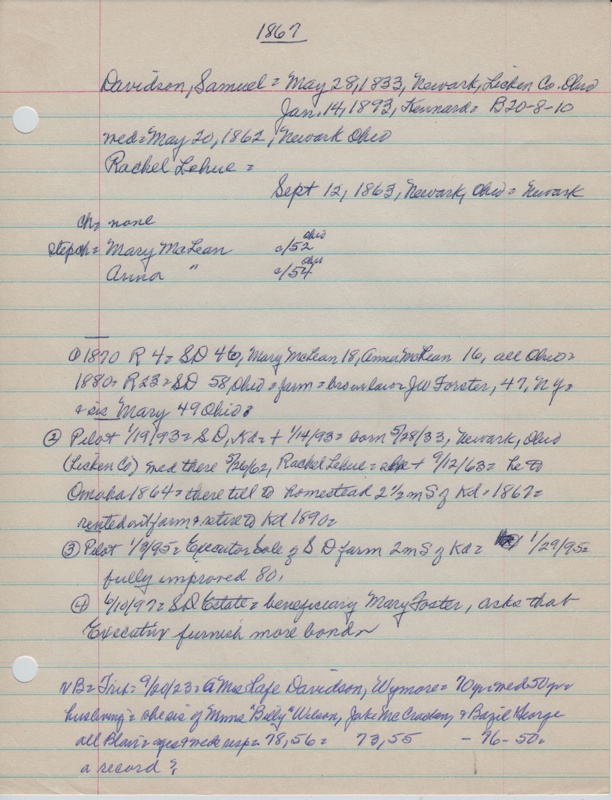 1867
Davidson, Samuel = May 28, 1833, Newark, Licken Co. Ohio
Jan. 14, 1893, Kennard = B20-8-10
med = May 20, 1862, Newark Ohio
Rachel Lehue =
Sept 12, 1863, Newark, Ohio = Newark
ch = none
stepch = Mary McLean c/52 Ohio
Anna " c/54 Ohio
① 1870 R 4 = S.D 46, Mary McLean 18, Anna McLean 16, all Ohio =
1880 = R23 = SD 58, Ohio = farm = bro-in-law = JW Forster, 47, N.Y. =
& sis Mary 49 Ohio =
② Pilot 1/19/93 = S D, Kd = + 1/14/93 = born 5/28/33, Newark, Ohio
(Licken Co) med there 5/26/62, Rachel Lehue = she + 9/12/63 = he to
Omaha 1864 = there till to homestead 2 1/2 m S of Kd = 1867 =
rented out farm & retire to Kd 1890 =
③ Pilot 1/9/95 = Executor Sale of S D farm 2 m S of Kd = 1/29/95 =
fully improved 80,
④ 6/10/97 = S.D Estate = beneficiary Mary Foster, asks that
Executiv furnish more bond
B = Trib = 9/20/23 = A Mrs Davidson, Wymore = 70 yr = med 50 yr =
hus living = she sis of Mmes "Billy" Wilson, Jake McCracken, & Bazil George
all Blair = ages & meds resp = 78, 56 = 73, 55 - 76 - 50 =
a record?